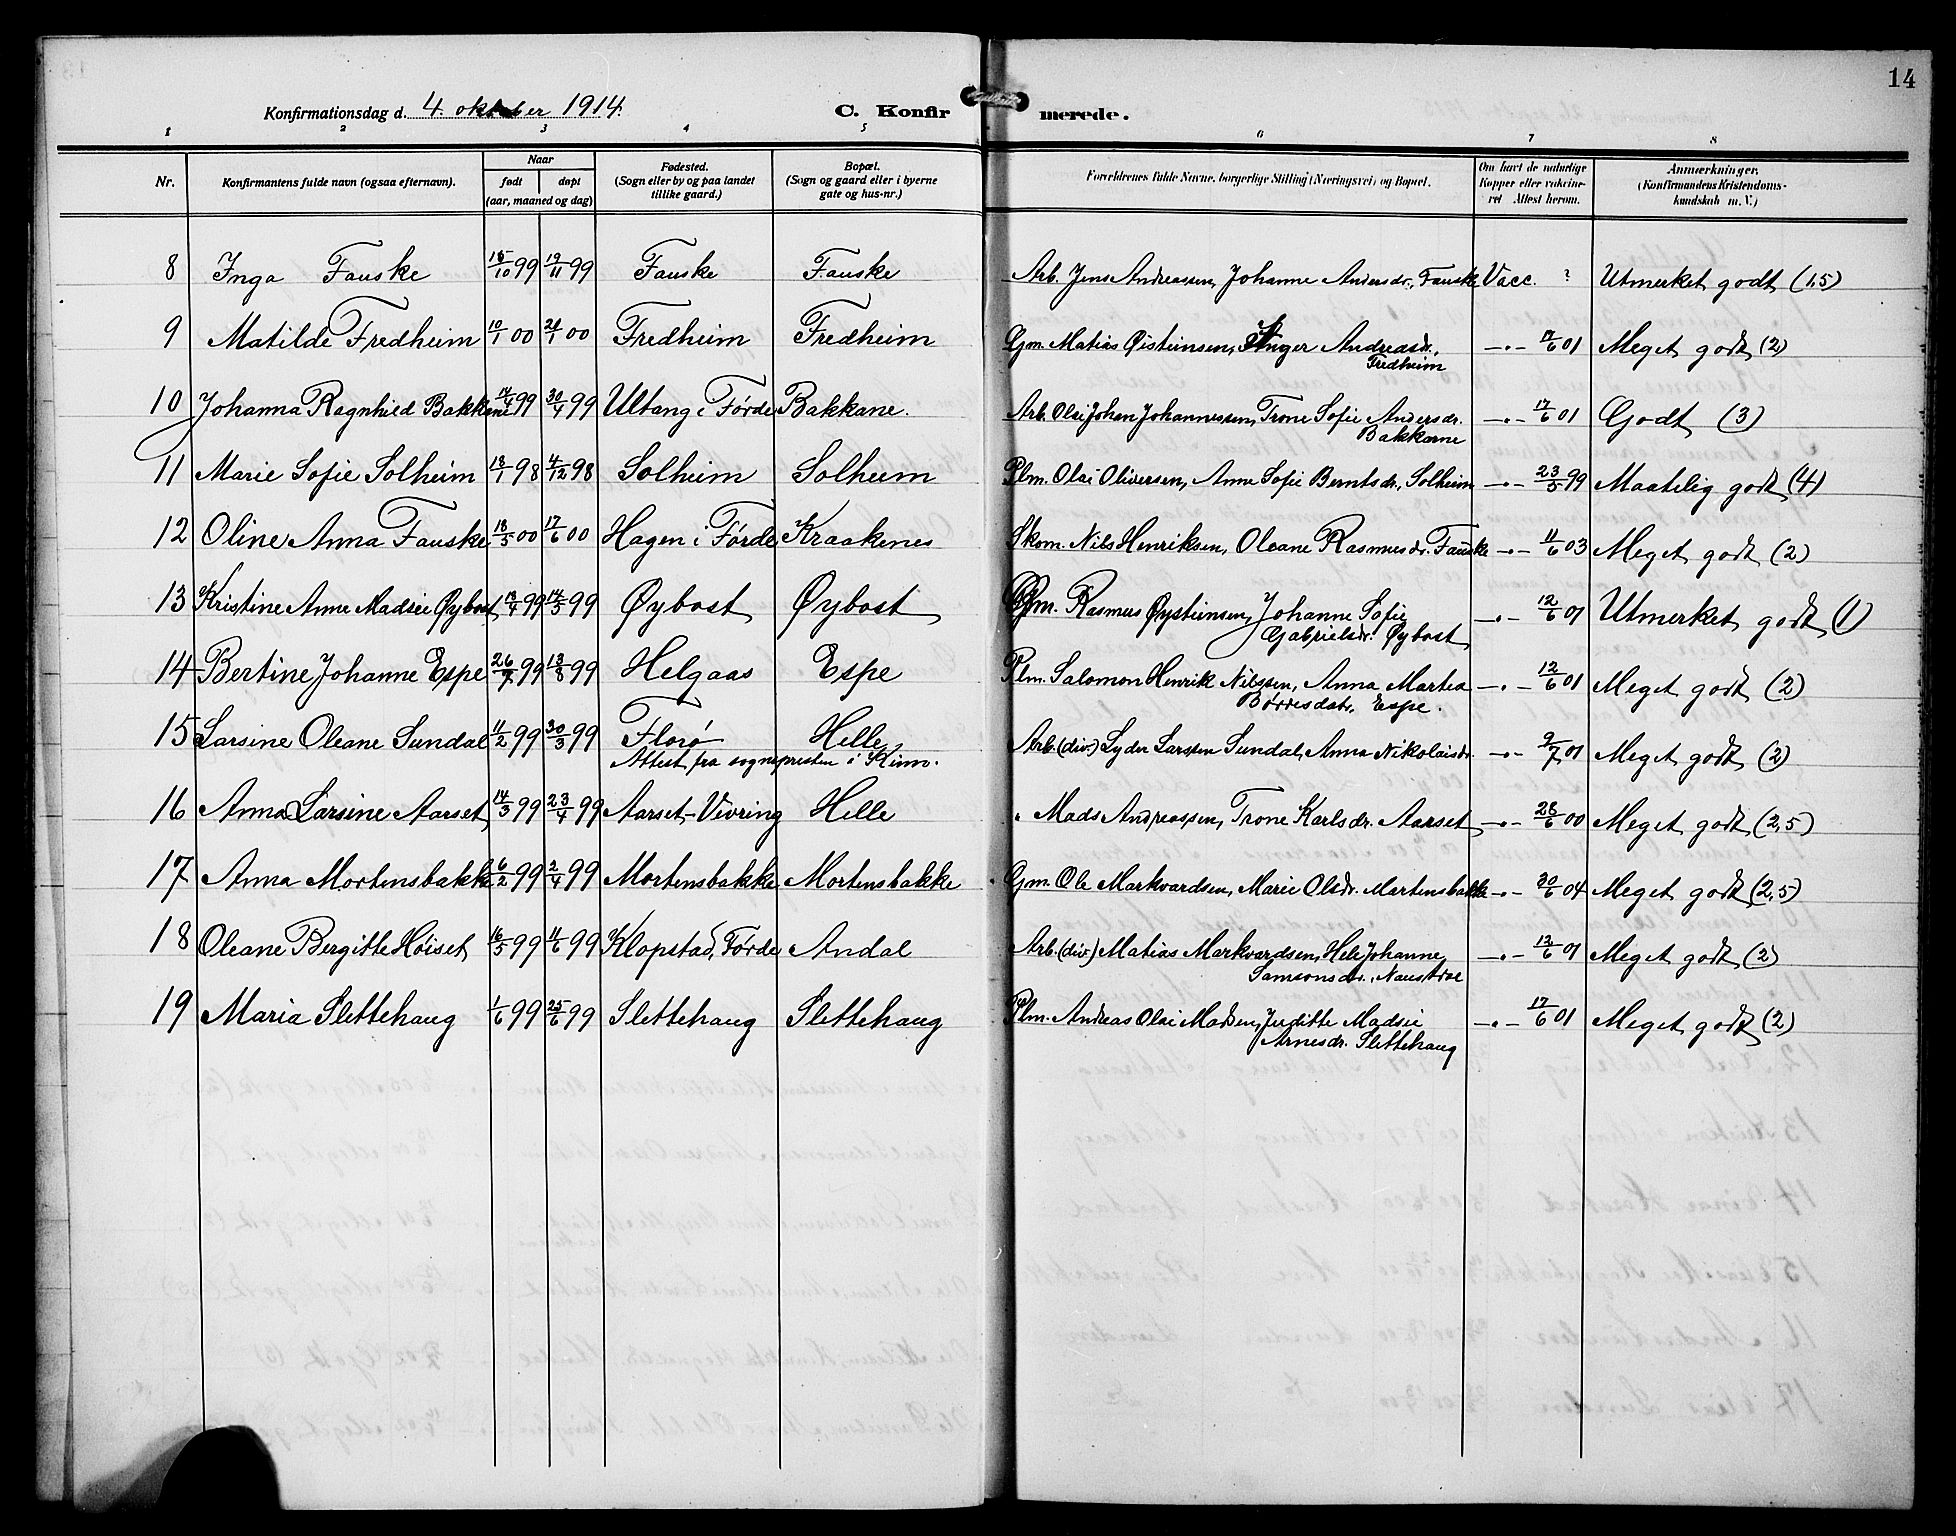 14
Konfirmationsdag d. 4. oktober 1914. C. Konfirmerede.
1 2 3 4 5 6 7 8
Nr. Konfirmantens fulde navn (ogsaa efternavn). Naar født døpt (aar, maaned og dag) Fødested. (Sogn eller by og paa landet tillike gaard.) Bopæl. (Sogn og gaard eller i byerne gate og hus-nr.) Forældrenes fulde Navne, borgerlige Stilling (Næringsvei) og Bopæl. Om havt de naturlige Kopper eller vakcineret Attest herom. Anmærkninger. (Konfirmandens Kristendomskundskab m. V.)
8 Inga Fauske 15/10 99 19/11 99 Fauske Fauske Arb. Jens Andreassen, Johanne Andersdr., Fauske Vacc. ? Utmerket godt (1,5)
9 Matilde Fredheim 10/1 00 21/1 00 Fredheim Fredheim Gm. Matias Øisteinsen, Inger Andreasdr.,
Fredheim
-"- 17/6 01 Meget godt (2)
10 Johanna Ragnhild Bakkene 14/4 99 30/4 99 Ultang i Førde Bakkane. Arb. Olai Johan Johannessen, Trone Sofie Andersdr.
Bakkarne
-"- 17/6 01 Godt (3)
11 Marie Sofie Solheim 18/1 98 4/12 98 Solheim Solheim Plm. Olai Oliversen, Anne Sofie Berntsdr., Solheim -"- 23/5 99 Maatelig godt (4)
12 Oline Anna Fauske 18/5 00 17/6 00 Hagen i Førde Kraakenes Skom. Nils Henriksen, Oleane Rasmusdr. Fauske -"- 11/6 03 Meget godt (2)
13 Kristine Anne Madsie Øybost 18/4 99 14/5 99 Øybost Øybost Gm. Rasmus Øysteinsen, Johanne Sofie
Gabrielsdr. Øybost
-"- 12/6 01 Utmerket godt (1)
14 Bertine Johanne Espe 26/7 99 13/8 99 Helgaas Espe Plm. Salomon Henrik Nilssen, Anna Martea
Børresdatr. Espe.
-"- 12/6 01 Meget godt (2)
15 Larsine Oleane Sundal 11/2 99 30/3 99 Florø Helle Arb. (div.) Lyder Larssen Sundal, Anna Nikolaisdr. -"- 9/7 01 Meget godt (2)
Attest fra sognepresten i Kinn.
16 Anna Larsine Aarset 14/3 99 23/4 99 Aarset-Vevring Helle " Mads Andreassen, Trone Karlsdr. Aarset -"- 28/6 00 Meget godt (2,5)
17 Anna Mortensbakke 6/2 99 2/4 99 Mortensbakke Mortensbakke Gm. Ole Markvardsen, Marie Olsdr. Martensbakke -"- 30/6 04 Meget godt (2,5)
18 Oleane Bergitte Høiset 16/5 99 11/6 99 Klopstad, Førde Andal Arb. (div) Matias Markvardsen, Hele Johanne
Samsonsdr., Naustdal
-"- 12/6 01 Meget godt (2)
19 Maria Slettehaug 1/6 99 25/6 99 Slettehaug Slettehaug Plm. Andreas Olai Madsen, Juditte Madsie
Arnesdr. Slettehaug
-"- 17/6 01 Meget godt (2)